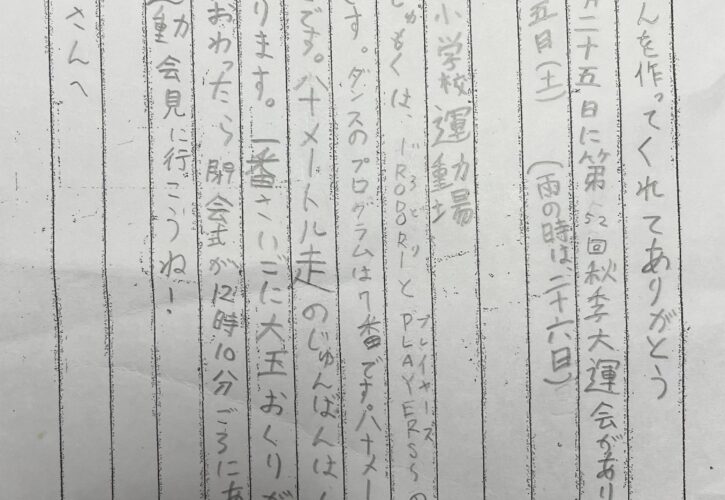 んを作ってくれてありがとう
月二十五日に第52回秋季大運会があり
五日(土) (雨の時は、二十六日)
小学校運動場
しゅもくは、IRODORIとPLAYERSSの
いろどり
プレイヤーズ
です。ダンスのプログラムは7番です。八十メー
です。八十メートル走のじゅんばんは
ります。一番さいごに大玉おくりが
おわったら閉会式が12時10分ごろにあ
動会見に行こうね!
さんへ